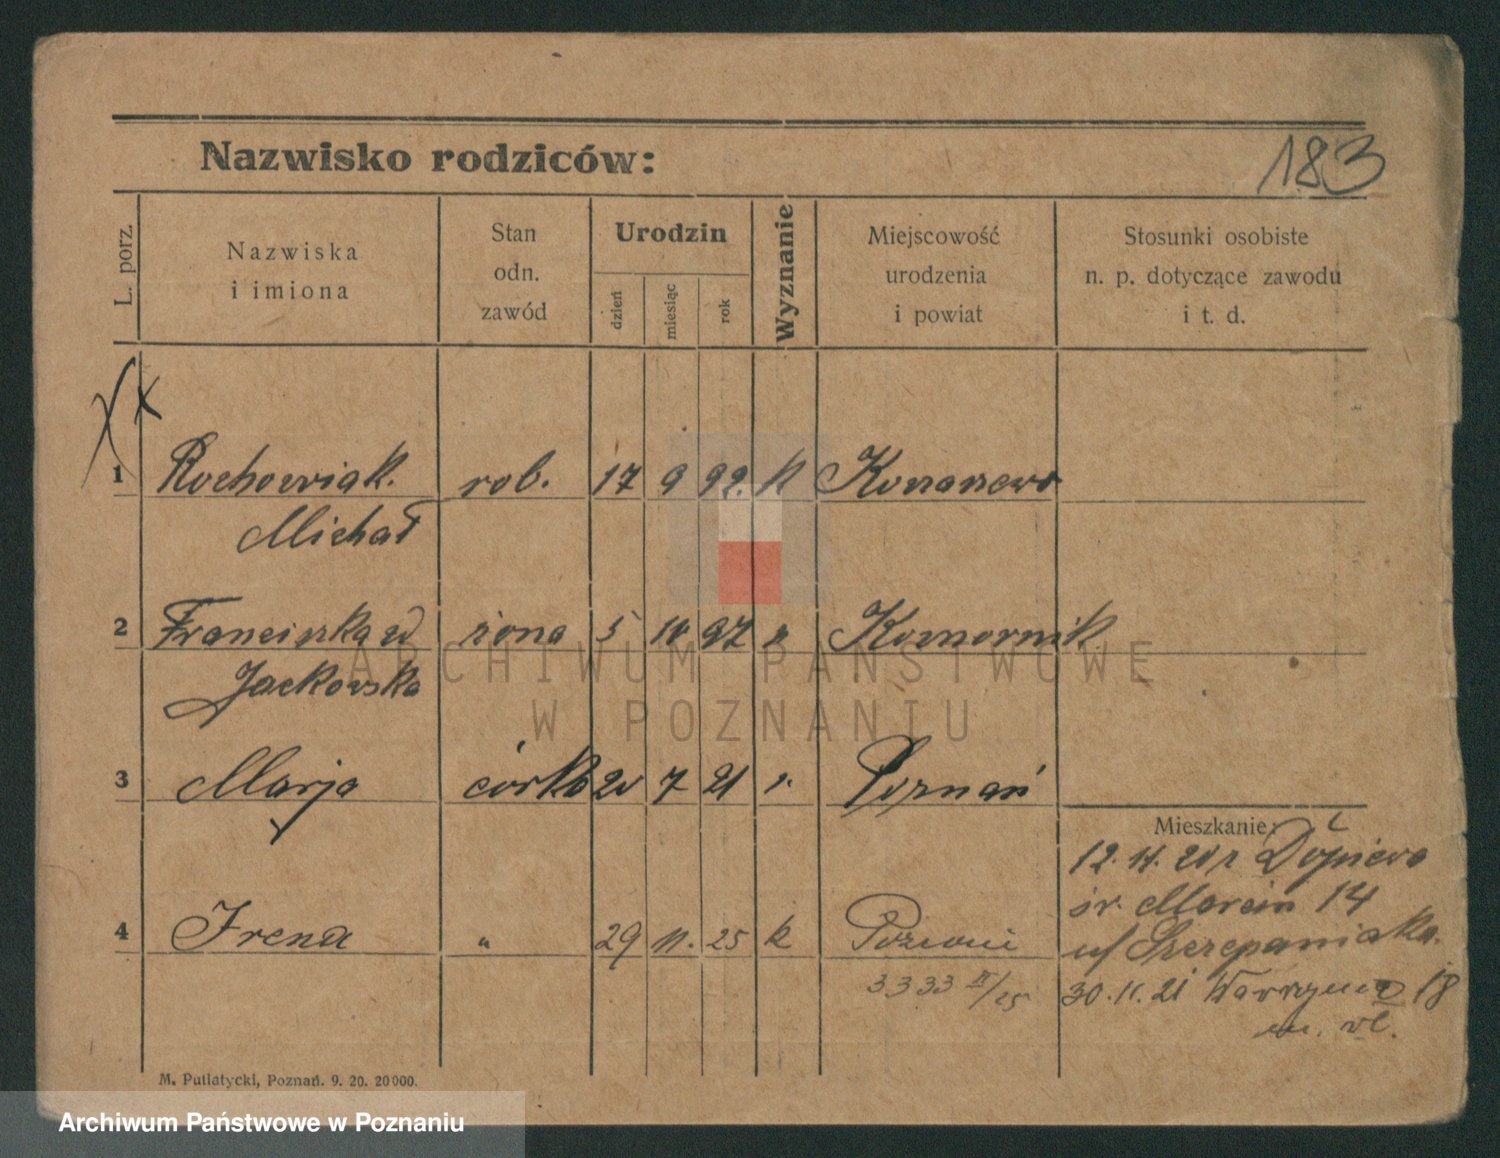 Nazwisko rodziców:
183
L. porz.
Nazwiska
i imiona
Stan
odn.
zawód
Urodzin
dzień
miesiąc
rok
Wyznanie
Miejscowość
urodzenia
i powiat
Stosunki osobiste
n. p. dotyczące zawodu
i t. d.
1 Rochowiak. rob. 17 9 92. k
Michał
2 Franciszka żona 5 10 97 Komornik
Jackowska
3 Marja córka 20 7 21 Poznań
Mieszkanie:
12. 11. 20 r Dopiewo
św. Marcin 14
u/ Szczepaniaka.
4 Irena " 29 11. 25 k Poznań
3333 II/25
30. 11. 21 Wawrzyńca 18
m. wł.
M. Putiatycki, Poznań. 9. 20. 20000.
ARCHIWUM PAŃSTWOWE
W POZNANIU
Archiwum Państwowe w Poznaniu